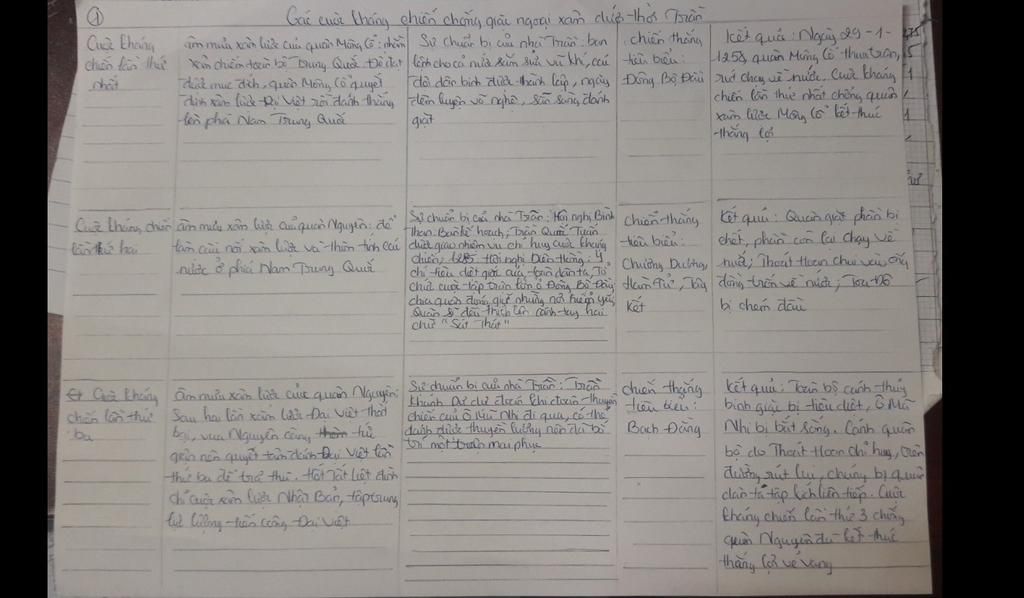 ① Các cuộc kháng chiến chống giặc ngoại xâm dưới thời Trần
Cuộc kháng
chiến lần thứ
nhất
âm mưu xâm lược của quân Mông Cổ: nhằm
xâm chiếm toàn bộ Trung Quốc. Để đạt
được mục đích, quân Mông Cổ quyết
định xâm lược Đại Việt rồi đánh thẳng
lên phía Nam Trung Quốc
Sự chuẩn bị của nhà Trần: ban
lệnh cho cả nước sắm sửa vũ khí, các
đội dân binh được thành lập, ngày
đêm luyện võ nghệ, sẵn sàng đánh
giặc
chiến thắng
tiêu biểu:
Đông Bộ Đầu
Kết quả: Ngày 29-1-
1258 quân Mông Cổ thua trận,
rút chạy về nước. Cuộc kháng
chiến lần thứ nhất chống quân
xâm lược Mông Cổ kết thúc
thắng lợi
Cuộc kháng chiến
lần thứ hai
âm mưu xâm lược của quân Nguyên: để
làm cầu nối xâm lược và thôn tính các
nước ở phía Nam Trung Quốc
Sự chuẩn bị của nhà Trần: Hội nghị Bình
Than. Bàn kế hoạch; Trần Quốc Tuấn
được giao nhiệm vụ chỉ huy cuộc kháng
chiến, 1285 Hội nghị Diên Hồng: Ý
chí tiêu diệt giặc của toàn dân ta, Tổ
chức cuộc tập trận lớn ở Đông Bộ Đầu
chia quân đóng giữ những nơi hiểm yếu
Quân sĩ đều thích lên cánh tay hai
chữ "Sát Thát"
chiến thắng
tiêu biểu:
Chương Dương,
Hàm Tử, Tây
Kết
Kết quả: Quân giặc phần bị
chết, phần còn lại chạy về
nước; Thoát Hoan chui vào ống
đồng trốn về nước; Toa Đô
bị chém đầu
Cuộc kháng
chiến lần thứ
ba
âm mưu xâm lược của quân Nguyên:
Sau hai lần xâm lược Đại Việt thất
bại, vua Nguyên càng tức
giận nên quyết tâm đánh Đại Việt lần
thứ ba để trả thù. Hốt Tất Liệt đình
chỉ cuộc xâm lược Nhật Bản, tập trung
lực lượng tiến công Đại Việt
Sự chuẩn bị của nhà Trần: Trần
Khánh Dư dự đoán khi đoàn thuyền
chiến của Ô Mã Nhi đi qua, có thể
đánh được thuyền lương nên đã bố
trí một trận mai phục
chiến thắng
tiêu biểu:
Bạch Đằng
Kết quả: Toàn bộ cánh thủy
binh giặc bị tiêu diệt, Ô Mã
Nhi bị bắt sống. Cánh quân
bộ do Thoát Hoan chỉ huy, trên
đường rút lui, chúng bị quân
dân ta tập kích liên tiếp. Cuộc
kháng chiến lần thứ 3 chống
quân Nguyên đã kết thúc
thắng lợi vẻ vang